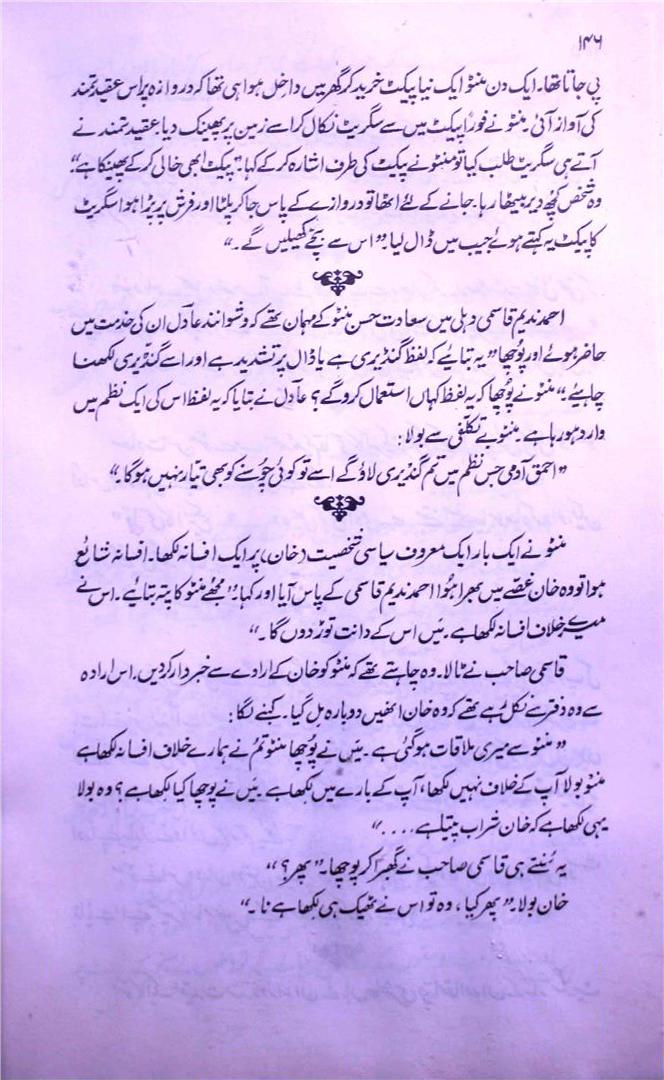 ۱۴۶
پی جاتا تھا۔ ایک دن منٹو ایک نیا پیکٹ خرید کر گھر میں داخل ہوا ہی تھا کہ دروازہ پر اس عقیدتمند
کی آواز آئی۔ منٹو نے فوراً پیکٹ میں سے سگریٹ نکال کر اسے زمین پر پھینک دیا۔ عقیدتمند نے
آتے ہی سگریٹ طلب کیا تو منٹو نے پیکٹ کی طرف اشارہ کر کے کہا۔ "پیکٹ ابھی خالی کر کے پھینکا ہے"۔
وہ شخص کچھ دیر بیٹھا رہا۔ جانے کے لئے اٹھا تو دروازے کے پاس جا کر پلٹا اور فرش پر پڑا ہوا سگریٹ
کا پیکٹ یہ کہتے ہوئے جیب میں ڈال لیا۔ "اس سے بچے کھیلیں گے۔"
احمد ندیم قاسمی دہلی میں سعادت حسن منٹو کے مہمان تھے کہ وشوانند عادل ان کی خدمت میں
حاضر ہوئے اور پوچھا "یہ بتایئے کہ لفظ گنڈیری ہے یا ڈال پر تشدید ہے اور اسے گنڈّیری لکھنا
چاہیئے۔" منٹو نے پوچھا کہ یہ لفظ کہاں استعمال کرو گے؟ عادل نے بتایا کہ یہ لفظ اس کی ایک نظم میں
وارد ہو رہا ہے۔ منٹو بے تکلفی سے بولا:
"احمق آدمی جس نظم میں تم گنڈیری لاؤ گے اسے تو کوئی چوسنے کو بھی تیار نہیں ہو گا۔"
منٹو نے ایک بار ایک معروف سیاسی شخصیت (خان) پر ایک افسانہ لکھا۔ افسانہ شائع
ہوا تو وہ خان غصّے میں بھرا ہُوا احمد ندیم قاسمی کے پاس آیا اور کہا۔ "مجھے منٹو کا پتہ بتایئے۔ اس نے
میرے خلاف افسانہ لکھا ہے۔ میَں اس کے دانت توڑ دوں گا۔"
قاسمی صاحب نے ٹالا۔ وہ چاہتے تھے کہ منٹو کو خان کے ارادے سے خبردار کر دیں۔ اس ارادہ
سے وہ دفتر سے نکل رہے تھے کہ وہ خان انھیں دوبارہ مل گیا۔ کہنے لگا:
"منٹو سے میری ملاقات ہو گئی ہے۔ میَں نے پوُچھا منٹو تم نے ہمارے خلاف افسانہ لکھا ہے
منٹو بولا آپ کے خلاف نہیں لکھا، آپ کے بارے میں لکھا ہے۔ میَں نے پوچھا کیا لکھا ہے؟ وہ بولا
یہی لکھا ہے کہ خان شراب پیتا ہے . . . ."
یہ سُنتے ہی قاسمی صاحب نے گھبرا کر پوچھا۔ "پھر؟"
خان بولا۔ "پھر کیا، وہ تو اس نے ٹھیک ہی لکھا ہے نا۔"